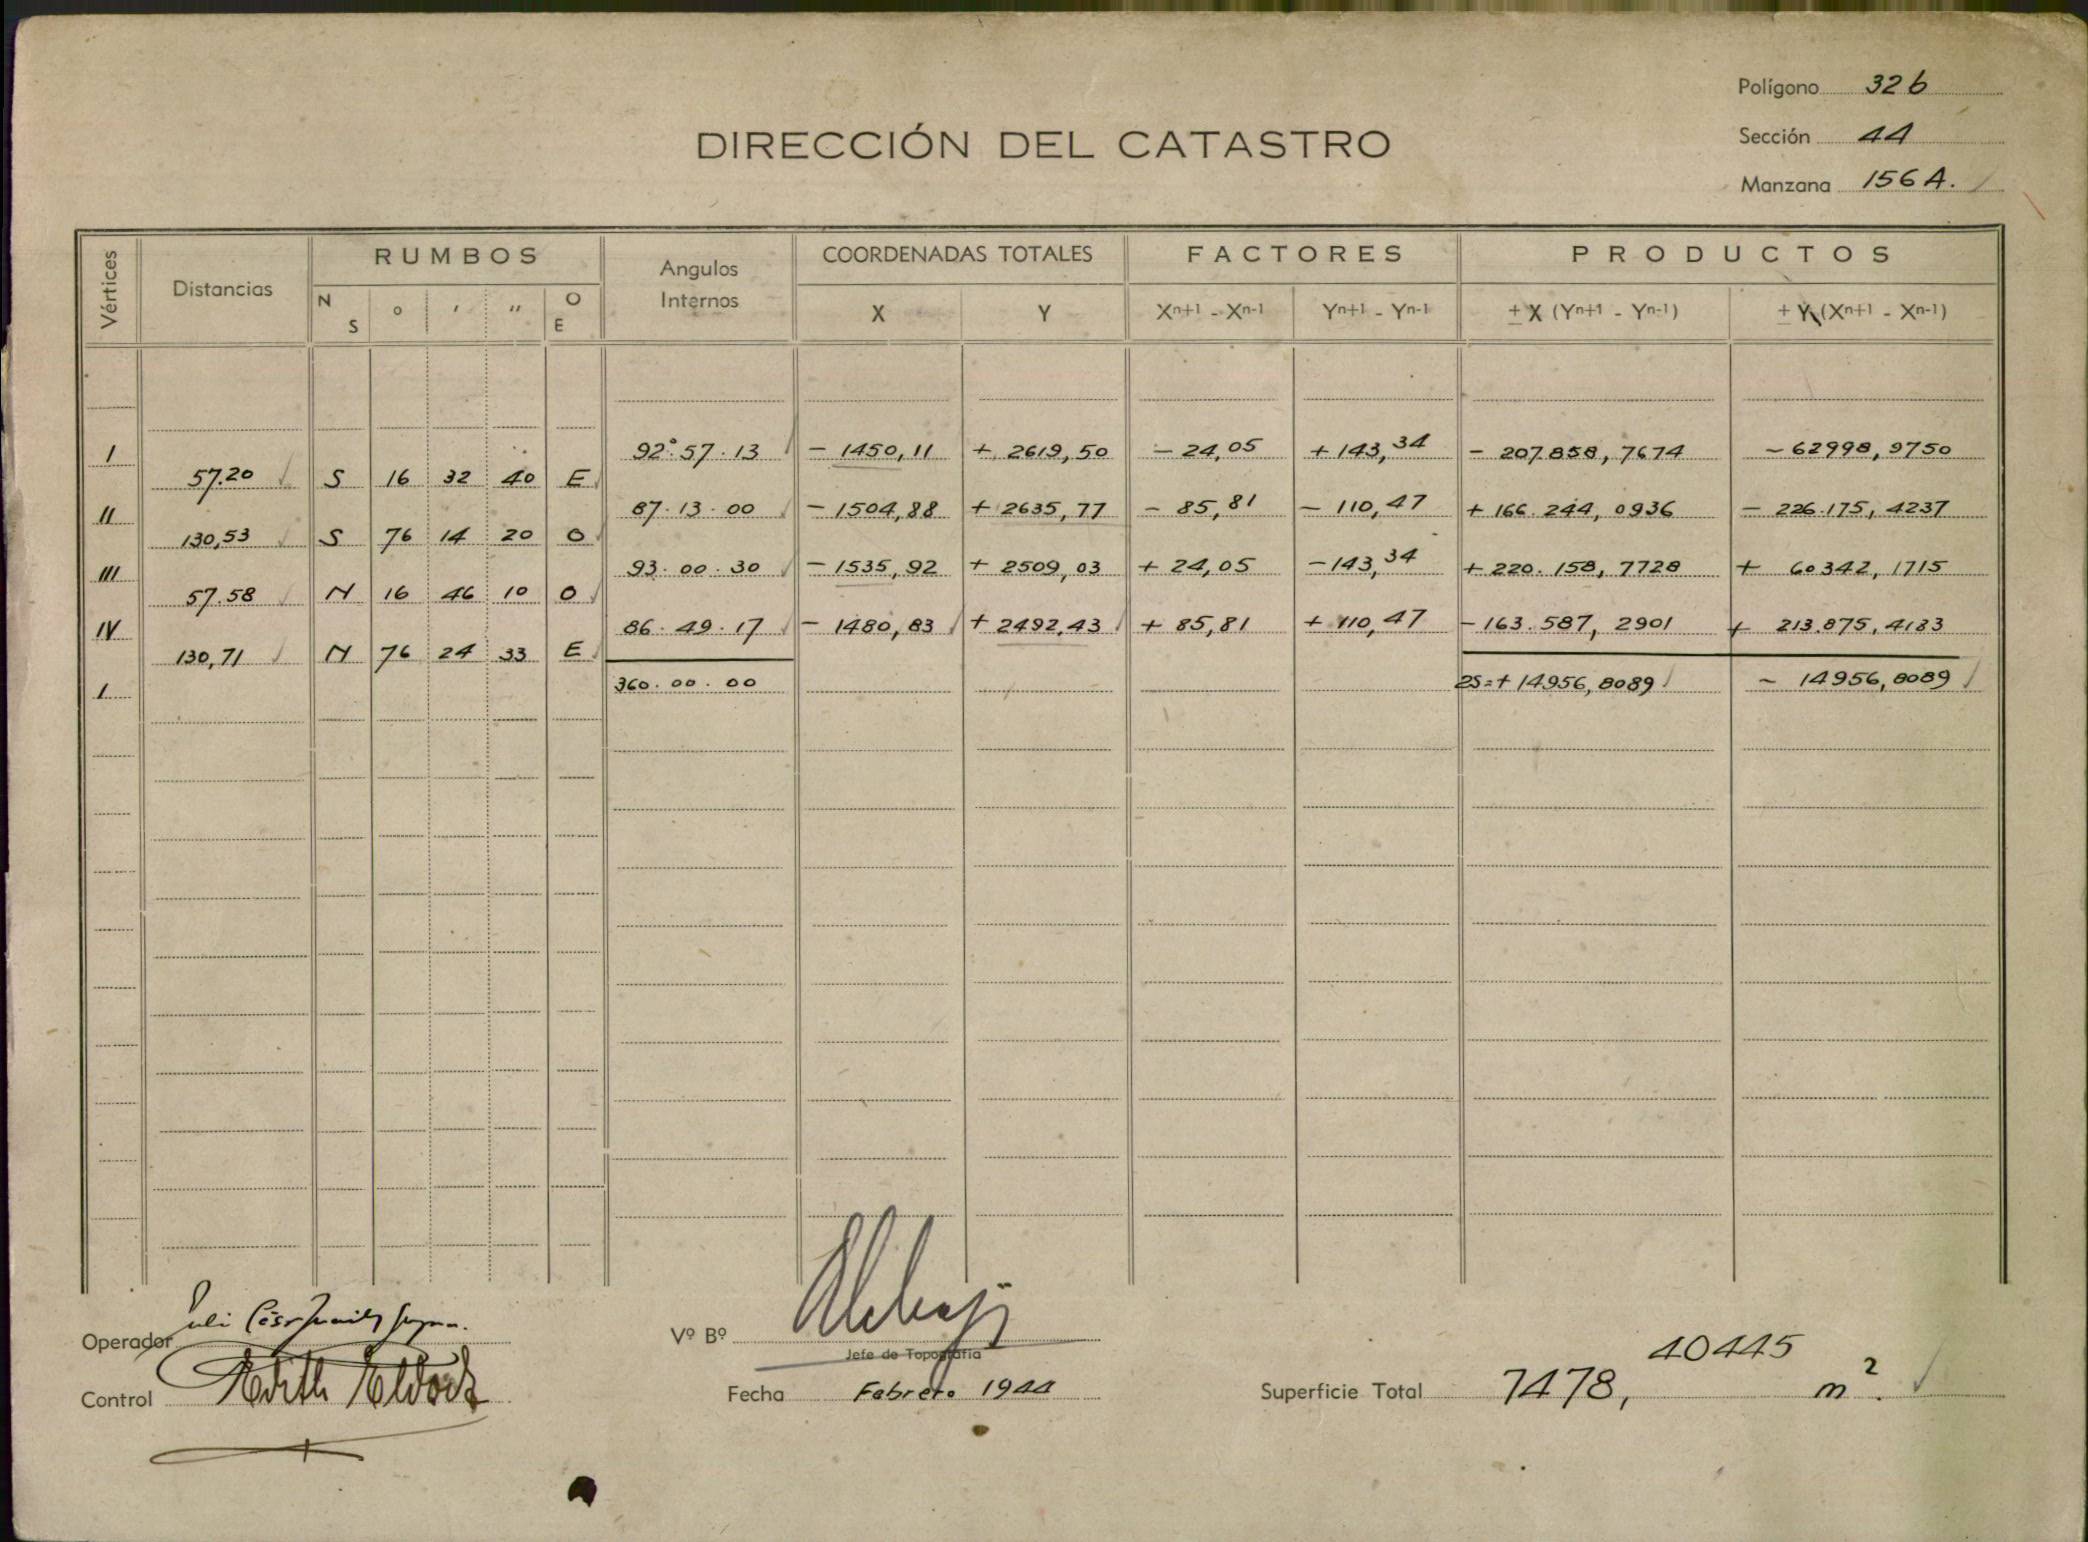 Polígono 326
DIRECCIÓN DEL CATASTRO
Sección 44
Manzana 156 A.
Vértices Distancias RUMBOS Angulos Internos COORDENADAS TOTALES FACTORES PRODUCTOS
N S ° ′ ″ O E X Y Xn+1 - Xn-1 Yn+1 - Yn-1 ± X (Yn+1 - Yn-1) ± Y (Xn+1 - Xn-1)
I 92° 57. 13 - 1450,11 + 2619,50 - 24,05 + 143,34 - 207.858,7674 - 62998,9750
57.20 S 16 32 40 E
II 87. 13. 00 - 1504,88 + 2635,77 - 85,81 - 110,47 + 166.244,0936 - 226.175,4237
130,53 S 76 14 20 O
III 93. 00. 30 - 1535,92 + 2509,03 + 24,05 - 143,34 + 220.158,7728 + 60342,1715
57.58 N 16 46 10 O
IV 86. 49. 17 - 1480,83 + 2492,43 + 85,81 + 110,47 - 163.587,2901 + 213.875,4183
130,71 N 76 24 33 E
I 360. 00. 00 2S=+ 14956,8089 - 14956,8089
Operador
Vº Bº
Jefe de Topografía
Control
Fecha Febrero 1944
Superficie Total 7478,40445 m2.